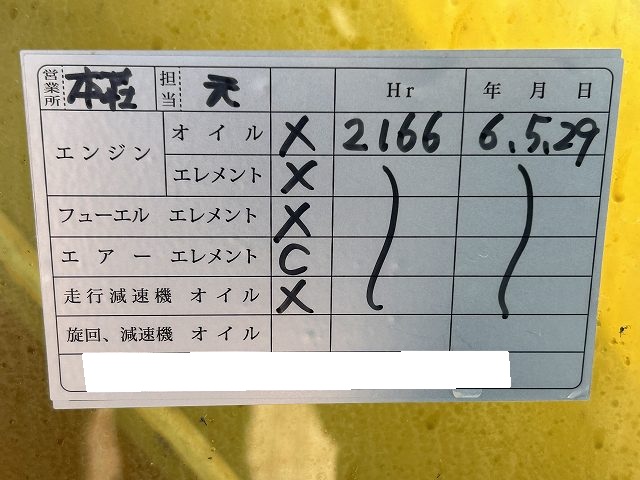 営業所 本社 担当 元 Hr 年 月 日
エンジン オイル X 2166 6.5.29
エレメント X
フューエル エレメント X
エアー エレメント C
走行減速機 オイル X
旋回、減速機 オイル